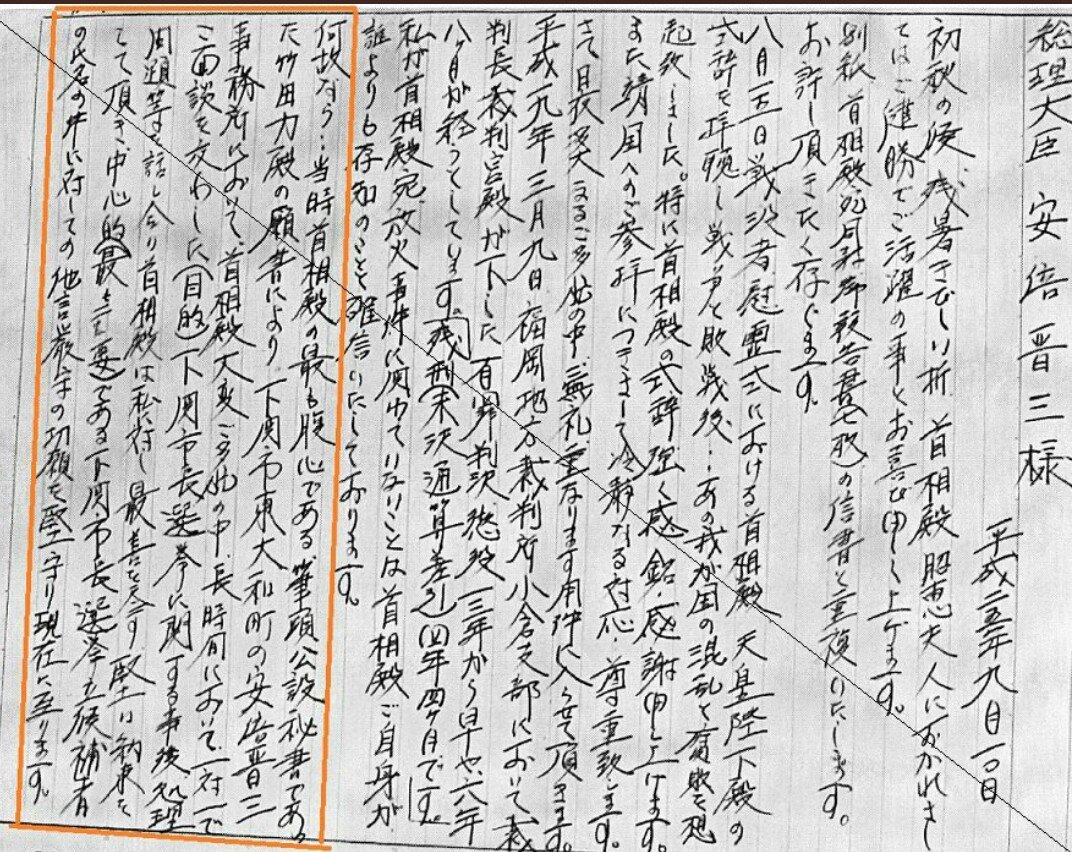 総理大臣 安倍晋三様
平成二五年九月一〇日
初秋の候、残暑きびしい折 首相殿 昭恵夫人におかれまし
てはご健勝でご活躍の事とお喜び申し上げます。
別紙 首相殿宛 の信書と重複いたします。
お許し頂きたく存じます。
八月十五日戦没者慰霊式における首相殿、天皇陛下殿の
式辞を拝聴し戦前と敗戦後‥あの我が国の混乱と腐敗を想
起致しました。特に首相殿の式辞強く感銘・感謝申し上げます。
また靖国へのご参拝につきまして冷静なる対応 尊重致します。
さて目 ご多忙の中、無礼重なります用件に入らせて頂きます。
平成一九年三月九日福岡地方裁判所小倉支部において裁
判長裁判官殿が下した有罪判決懲役一三年から早や六年
八ヶ月が経っています。残刑(未決通算差引)四年四ヶ月です。
私が首相殿宛放火事件に関わっていないことは首相殿ご自身が
誰よりも存知のことと確信いたしております。
何故なら‥当時首相殿の最も腹心である、筆頭公設秘書であっ
た竹田力殿の願書により、下関市東大和町の安倍晋三
事務所において、首相殿大変ご多忙の中、長時間において一対一で
ご面談を交わした(目的)下関市長選挙に関する事後処理
問題等を話し合い首相殿は私に対し最善を尽す 堅い約束を
して頂き、中心的(最も重要)である下関市長選挙立候補者
の氏名の件に対しての他言厳守の切願を堅守り現在に至ります。